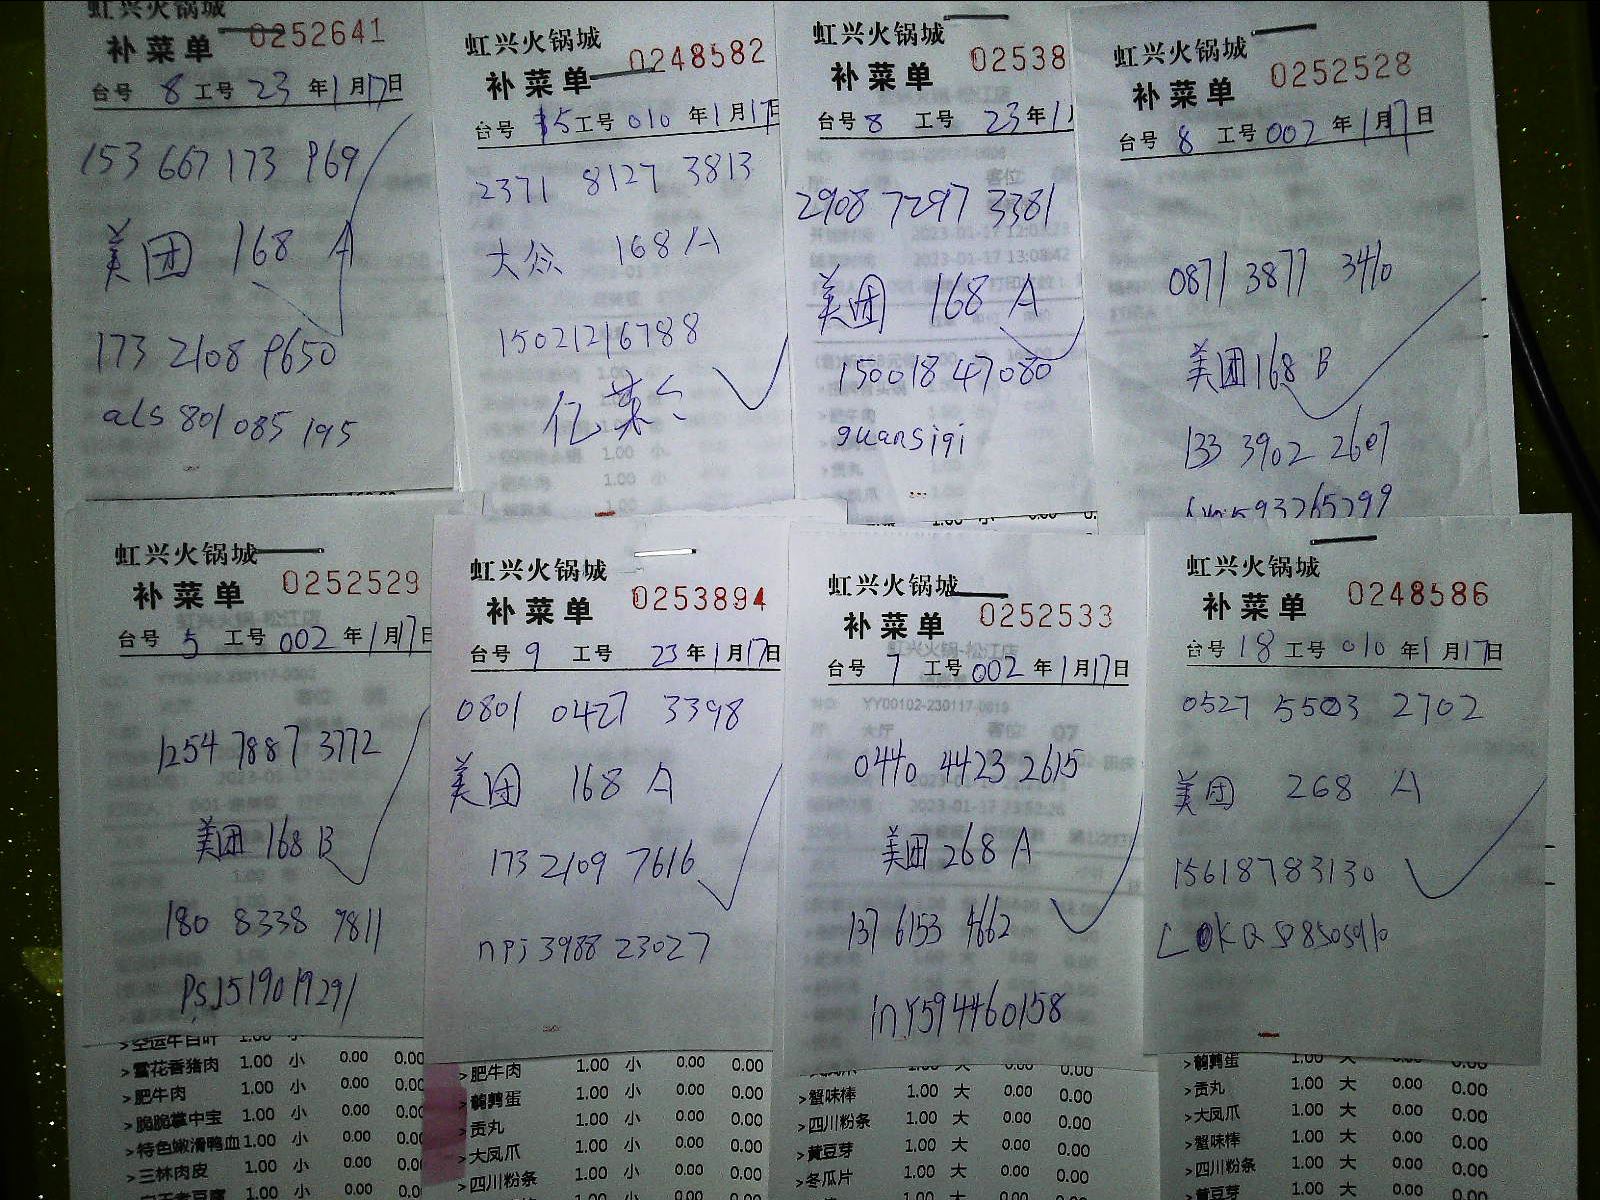 虹兴火锅城
补菜单 0252641
台号 8 工号 23 年1月17日
153 667 173 969
美团 168 A
173 2108 9650
als 801 085 195
虹兴火锅城
补菜单 0248582
台号 15 工号 010 年1月17日
2371 8127 3813
大众 168 A
15021216788
亿菜
虹兴火锅城
补菜单 02538
台号 8 工号 23 年1
2908 7297 3381
美团 168 A
150018 47080
guansiqi
虹兴火锅城
补菜单 0252528
台号 8 工号 002 年1月17日
0871 3877 3410
美团 168 B
133 3902 2607
虹兴火锅城
补菜单 0252529
台号 5 工号 002 年1月17日
1254 7887 3772
美团 168 B
180 8338 9811
PSJ519019291
虹兴火锅城
补菜单 0253894
台号 9 工号 23 年1月17日
0801 0427 3398
美团 168 A
173 2109 7616
npj 3988 23027
虹兴火锅城
补菜单 0252533
台号 7 工号 002 年1月17日
YY00102-230117-0819
大厅 客位 07
0440 4423 2615
美团 268 A
137 6153 4662
lnY594460158
虹兴火锅城
补菜单 0248586
台号 18 工号 010 年1月17日
0527 5503 2702
美团 268 A
15618783130
>空运牛百叶 1.00 小 0.00 0.00
>雪花香猪肉 1.00 小 0.00 0.00
>肥牛肉 1.00 小 0.00 0.00
>脆脆掌中宝 1.00 小 0.00 0.00
>特色嫩滑鸭血 1.00 小 0.00 0.00
>三林肉皮 1.00 小 0.00 0.0
>肥牛肉 1.00 小 0.00 0.00
>鹌鹑蛋 1.00 小 0.00 0.00
>贡丸 1.00 小 0.00 0.00
>大凤爪 1.00 小 0.00 0.00
>四川粉条 1.00 小 0.00 0.00
>蟹味棒 1.00 大 0.00 0.00
>四川粉条 1.00 大 0.00 0.00
>黄豆芽 1.00 大 0.00 0.00
>冬瓜片 1.00 大 0.00 0.00
>鹌鹑蛋 1.00 大 0.00 0.00
>贡丸 1.00 大 0.00 0.00
>大凤爪 1.00 大 0.00 0.00
>蟹味棒 1.00 大 0.00 0.00
>四川粉条 1.00 大 0.00 0.00
>黄豆芽 1.00 大 0.00 0.00